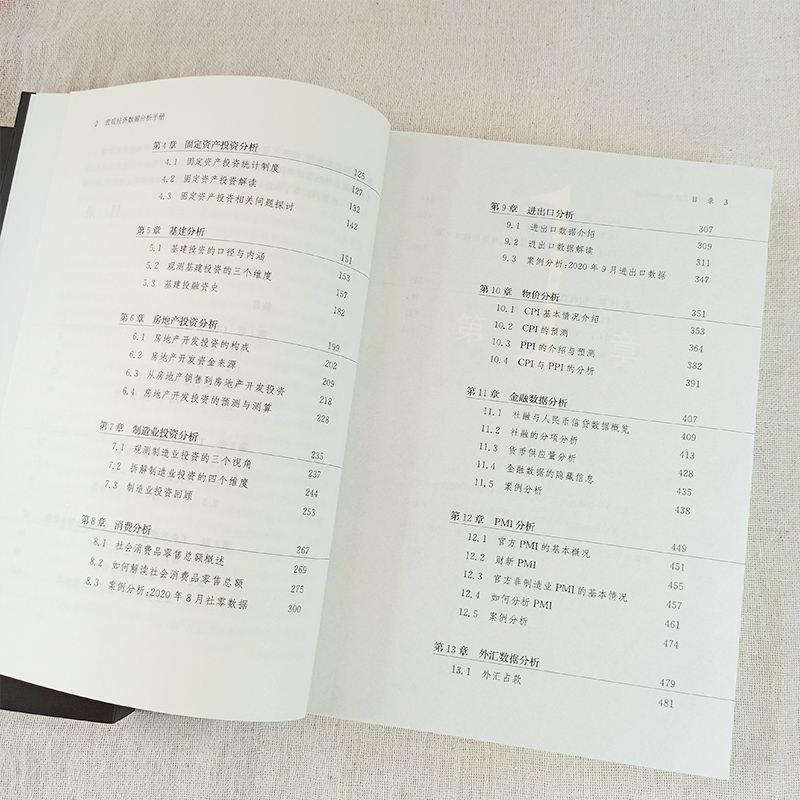 2 宏观经济数据分析手册
第4章 固定资产投资分析 125
4.1 固定资产投资统计制度 127
4.2 固定资产投资解读 132
4.3 固定资产投资相关问题探讨 142
第5章 基建分析 151
5.1 基建投资的口径与内涵 153
5.2 观测基建投资的三个维度 157
5.3 基建投融资史 182
第6章 房地产投资分析 199
6.1 房地产开发投资的构成 202
6.2 房地产开发资金来源 209
6.3 从房地产销售到房地产开发投资 218
6.4 房地产开发投资的预测与测算 228
第7章 制造业投资分析 235
7.1 观测制造业投资的三个视角 237
7.2 拆解制造业投资的四个维度 244
7.3 制造业投资回顾 253
第8章 消费分析 267
8.1 社会消费品零售总额概述 269
8.2 如何解读社会消费品零售总额 275
8.3 案例分析:2020年8月社零数据 300
目录 3
第9章 进出口分析 307
9.1 进出口数据介绍 309
9.2 进出口数据解读 311
9.3 案例分析:2020年9月进出口数据 347
第10章 物价分析 351
10.1 CPI基本情况介绍 353
10.2 CPI的预测 364
10.3 PPI的介绍与预测 382
10.4 CPI与PPI的分析 391
第11章 金融数据分析 407
11.1 社融与人民币信贷数据概览 409
11.2 社融的分项分析 413
11.3 货币供应量分析 428
11.4 金融数据的隐藏信息 435
11.5 案例分析 438
第12章 PMI分析 449
12.1 官方PMI的基本概况 451
12.2 财新PMI 455
12.3 官方非制造业PMI的基本情况 457
12.4 如何分析PMI 461
12.5 案例分析 474
第13章 外汇数据分析 479
13.1 外汇占款 481